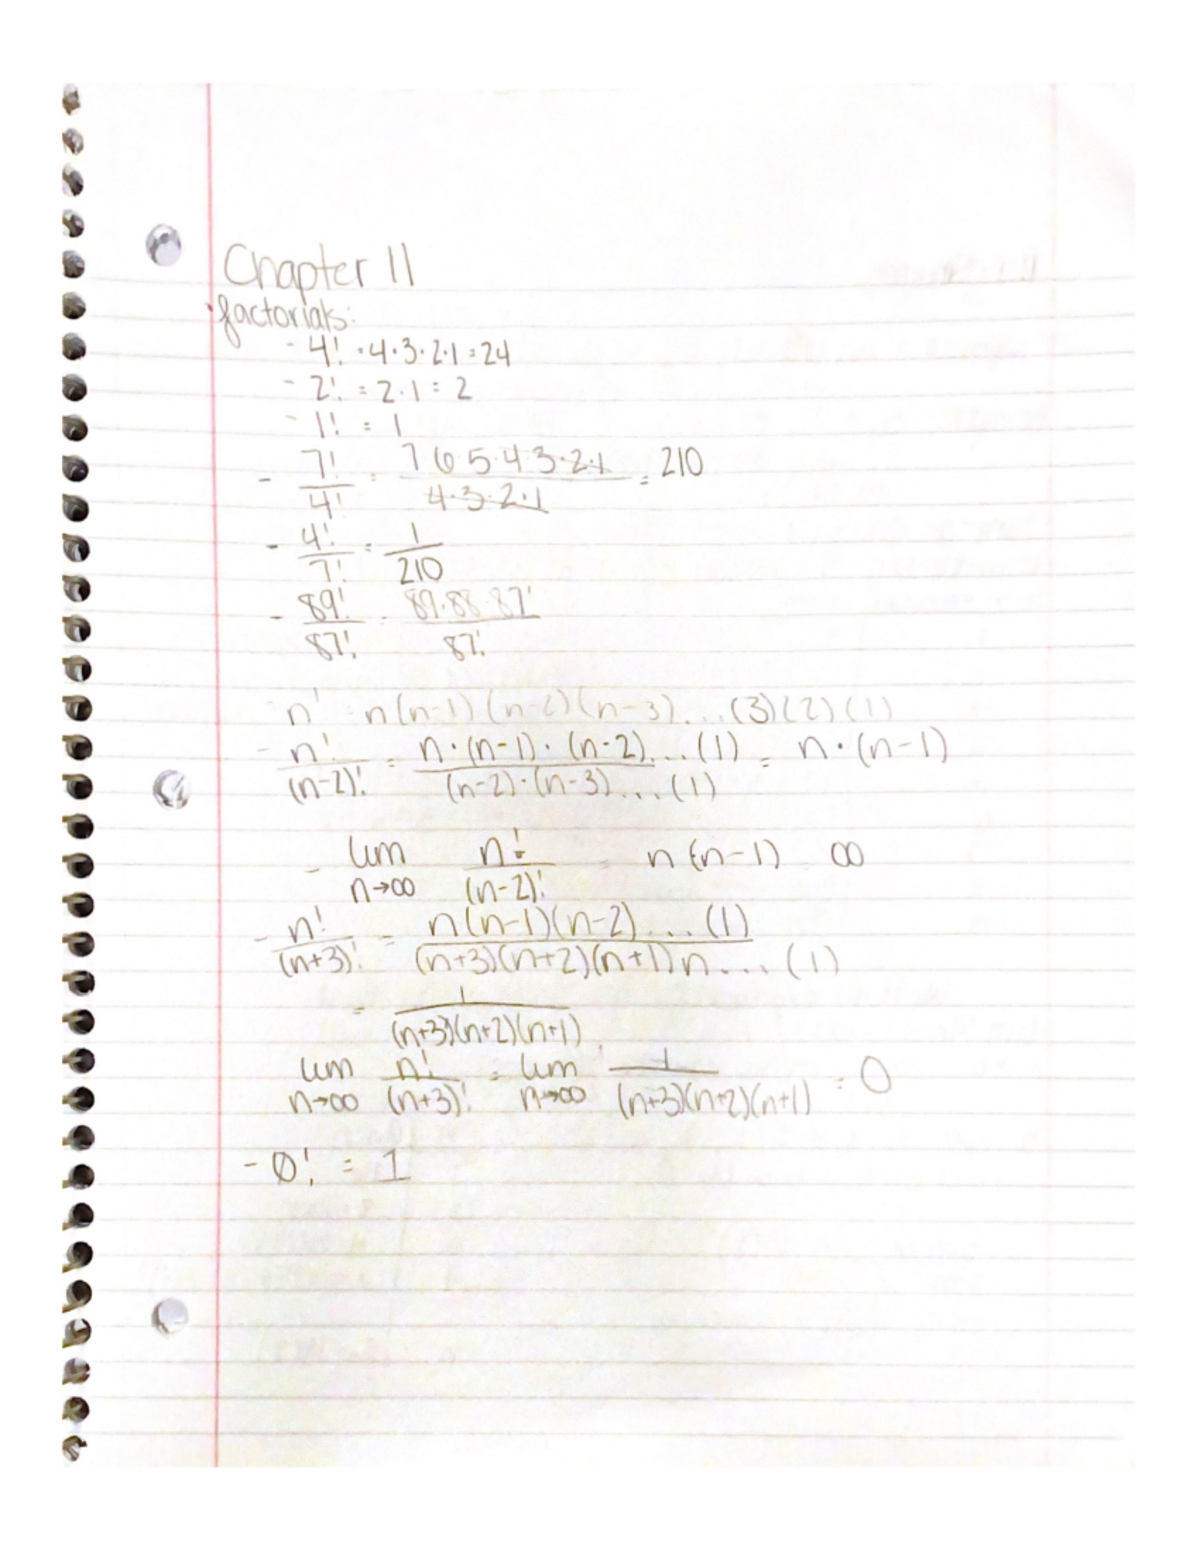 Chapter 11
• factorials:
- 4! = 4·3·2·1 = 24
- 2! = 2·1 = 2
- 1! = 1
- 7!/4! = 7 6 5·4 3·2·1 / 4·3·2·1 = 210
- 4!/7! = 1/210
- 89!/87! = 89·88·87!/87!
- n! = n(n-1)(n-2)(n-3)...(3)(2)(1)
- n!/(n-2)! = n·(n-1)·(n-2)...(1) / (n-2)·(n-3)...(1) = n·(n-1)
- lim n→∞ n!/(n-2)! = n(n-1) ∞
- n!/(n+3)! = n(n-1)(n-2)...(1) / (n+3)(n+2)(n+1)n...(1)
= 1/(n+3)(n+2)(n+1)
lim n→∞ n!/(n+3)! = lim n→∞ 1/(n+3)(n+2)(n+1) = 0
- 0! = 1